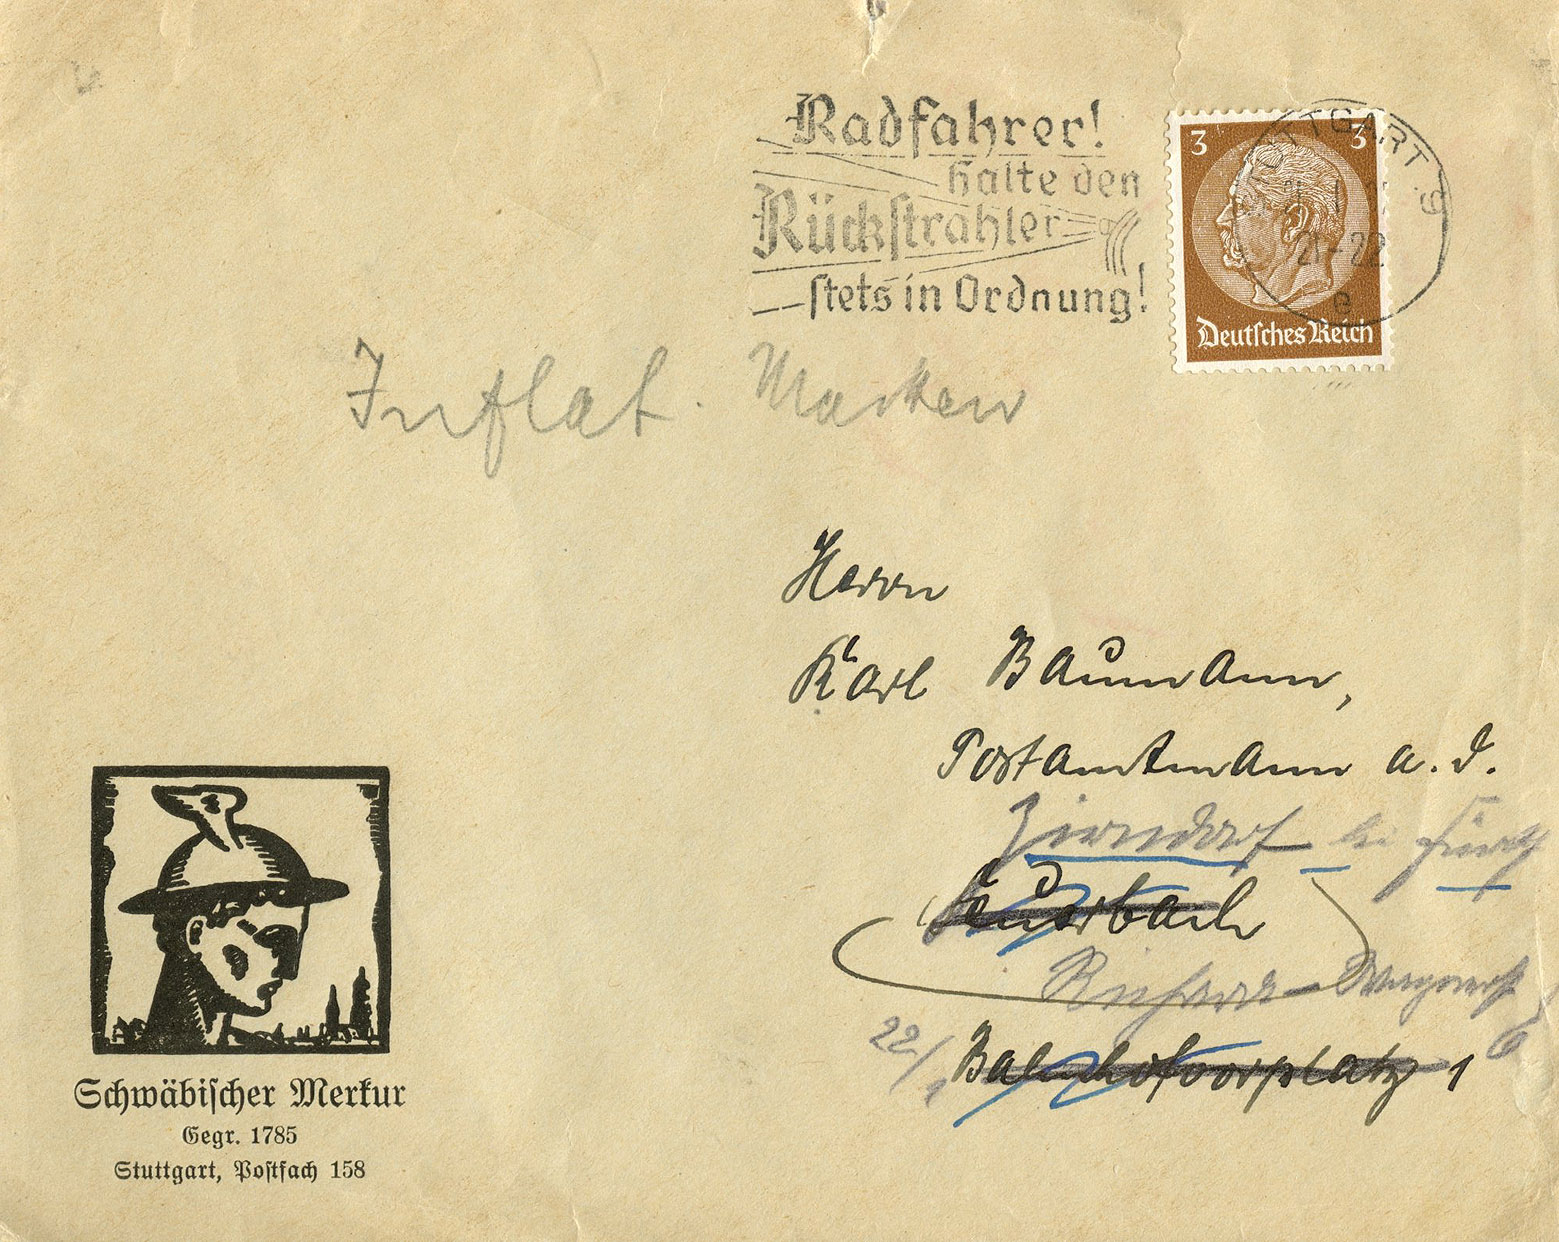 Radfahrer!
halte den
Rückstrahler
stets in Ordnung!
3 3
STUTTGART 9
21-22
e
Deutsches Reich
Inflat. Marken
Herrn
Karl Baumann,
Postamtmann a. D.
Zirndorf bei Fürth
Feuerbach
Richard-Wagnerst
6
22/1
Bahnhofvorplatz 1
Schwäbischer Merkur
Gegr. 1785
Stuttgart, Postfach 158